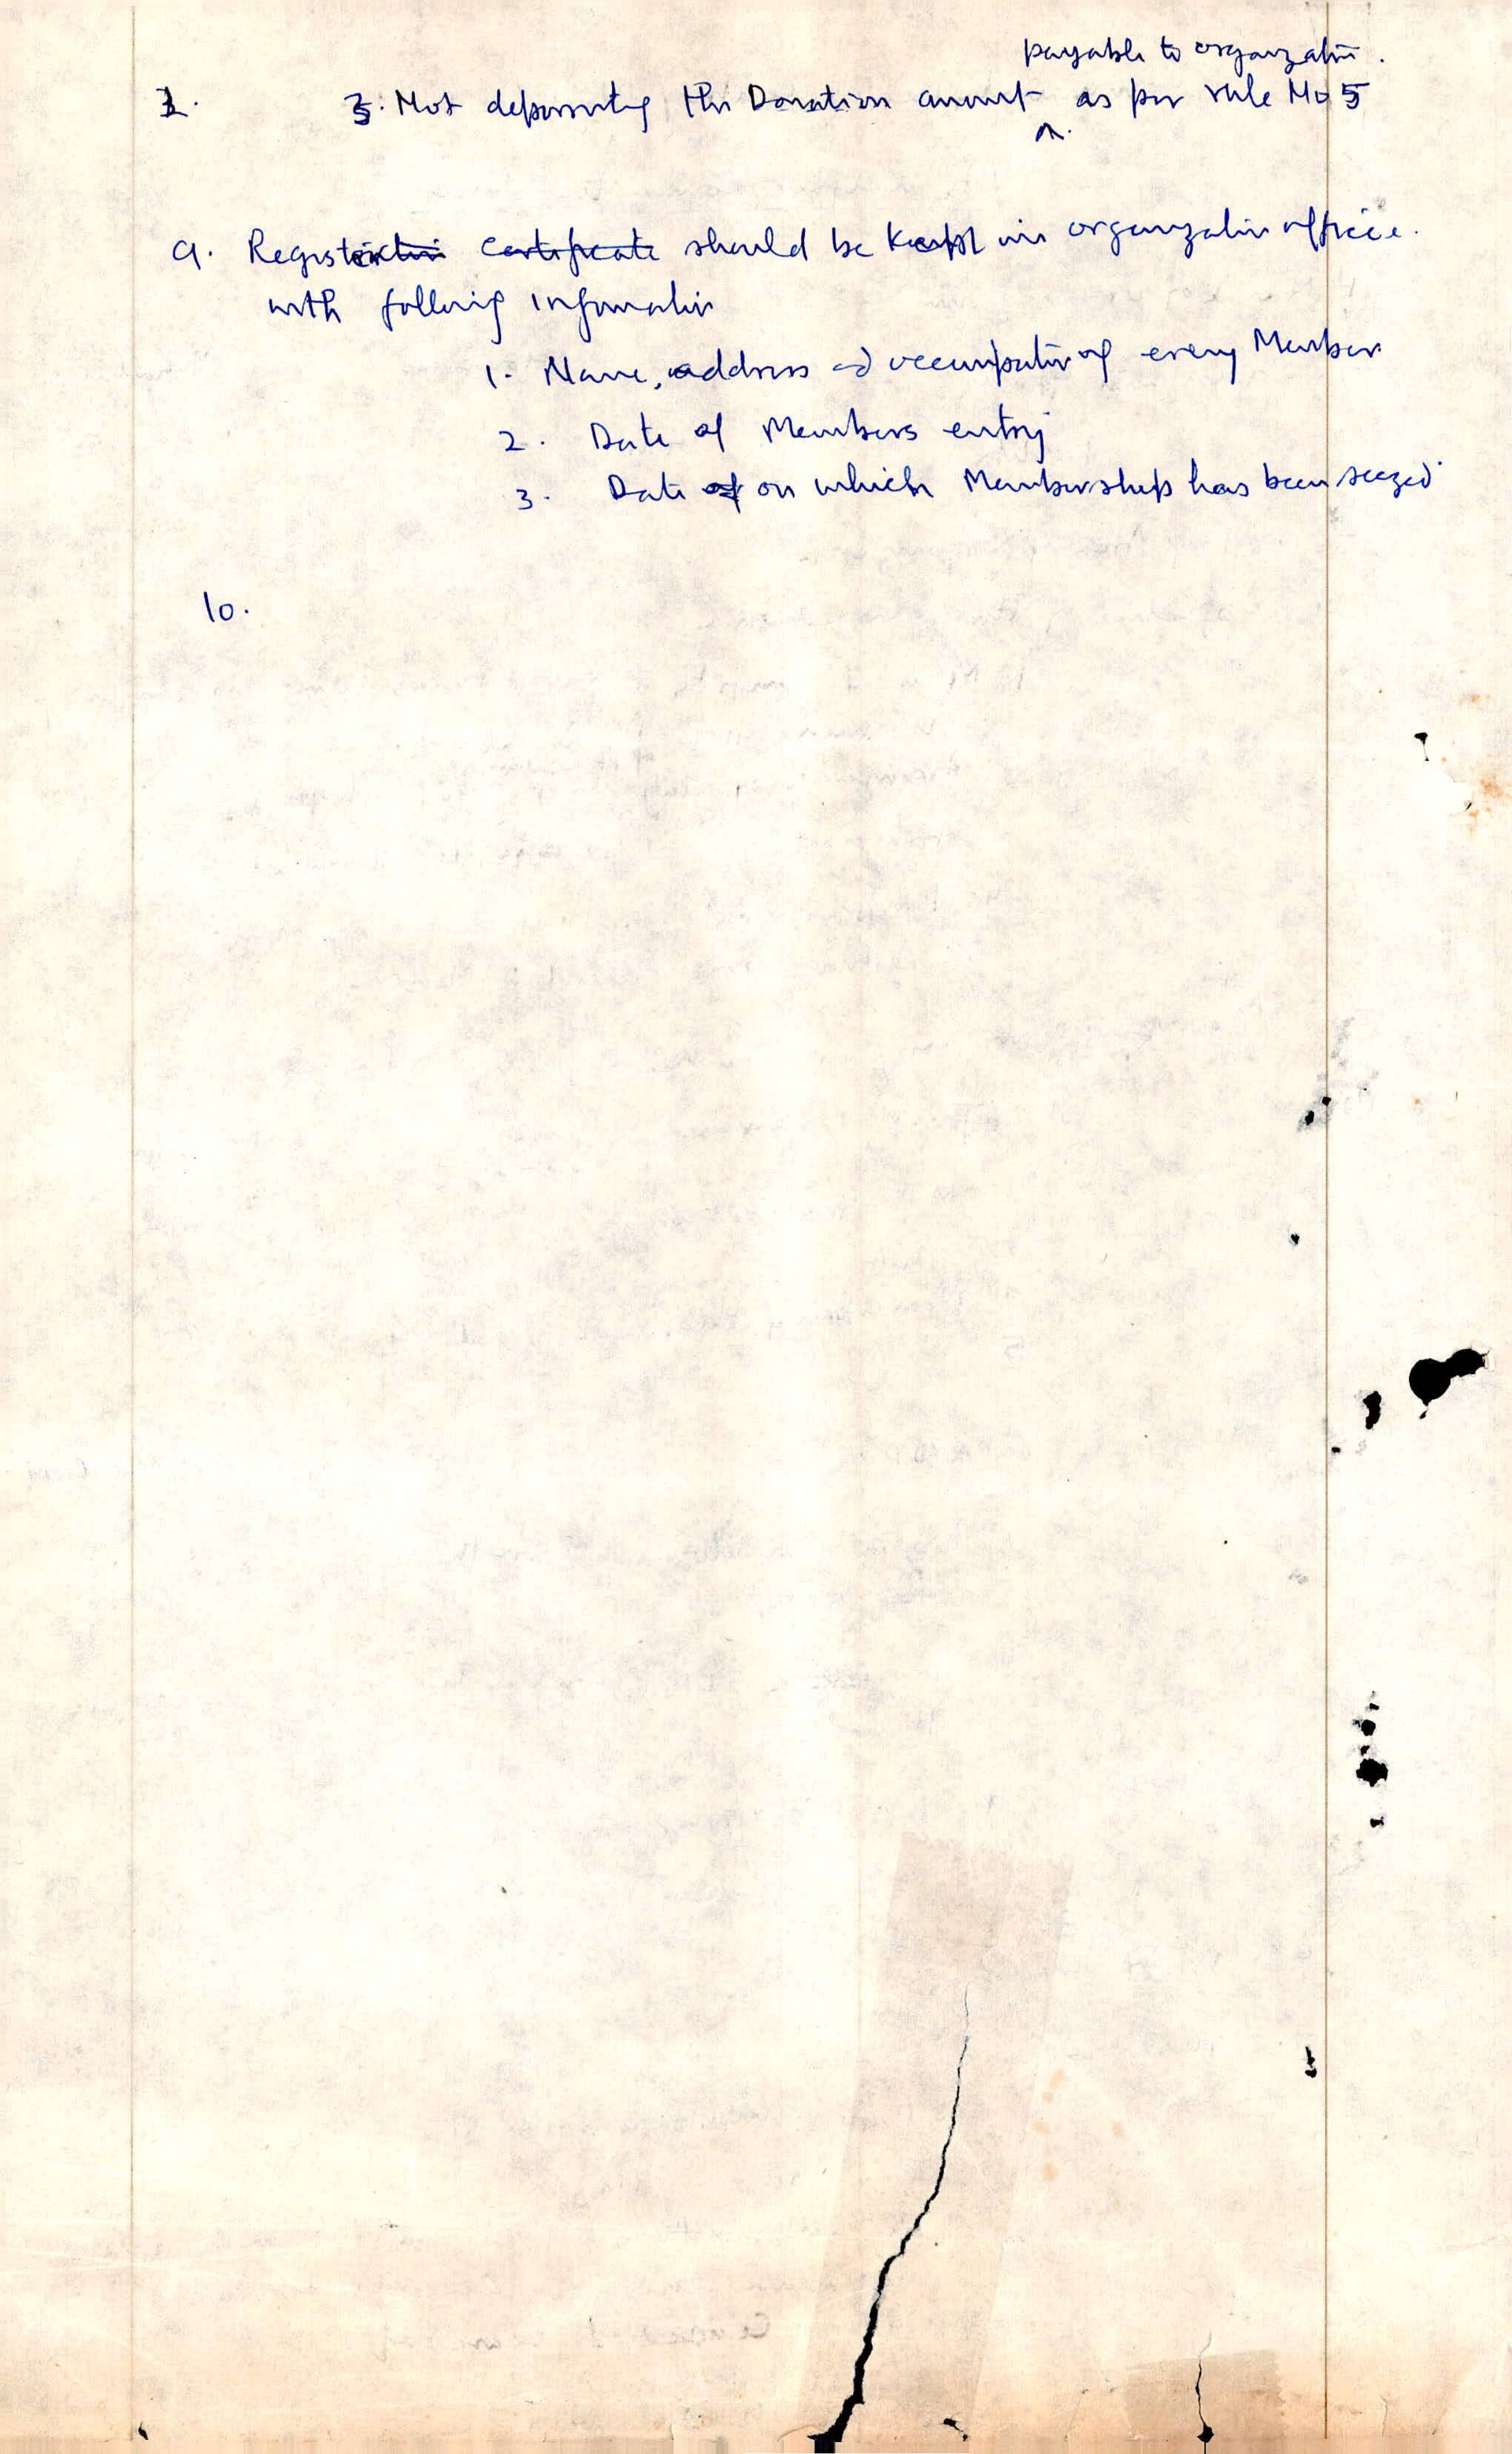 payable to organization.
1. 3. Not depositing the Donation amount ^ as per rule No 5
9. Registration certificate should be kept in organization office.
with following information
1. Name, address and occupation of every Member
2. Date of Members entry
3. Date of on which Membership has been seezed
10.